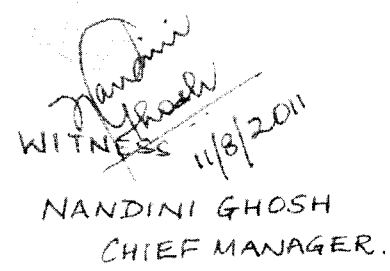 Nandini
Ghosh
WITNESS 11/8/2011
NANDINI GHOSH
CHIEF MANAGER.